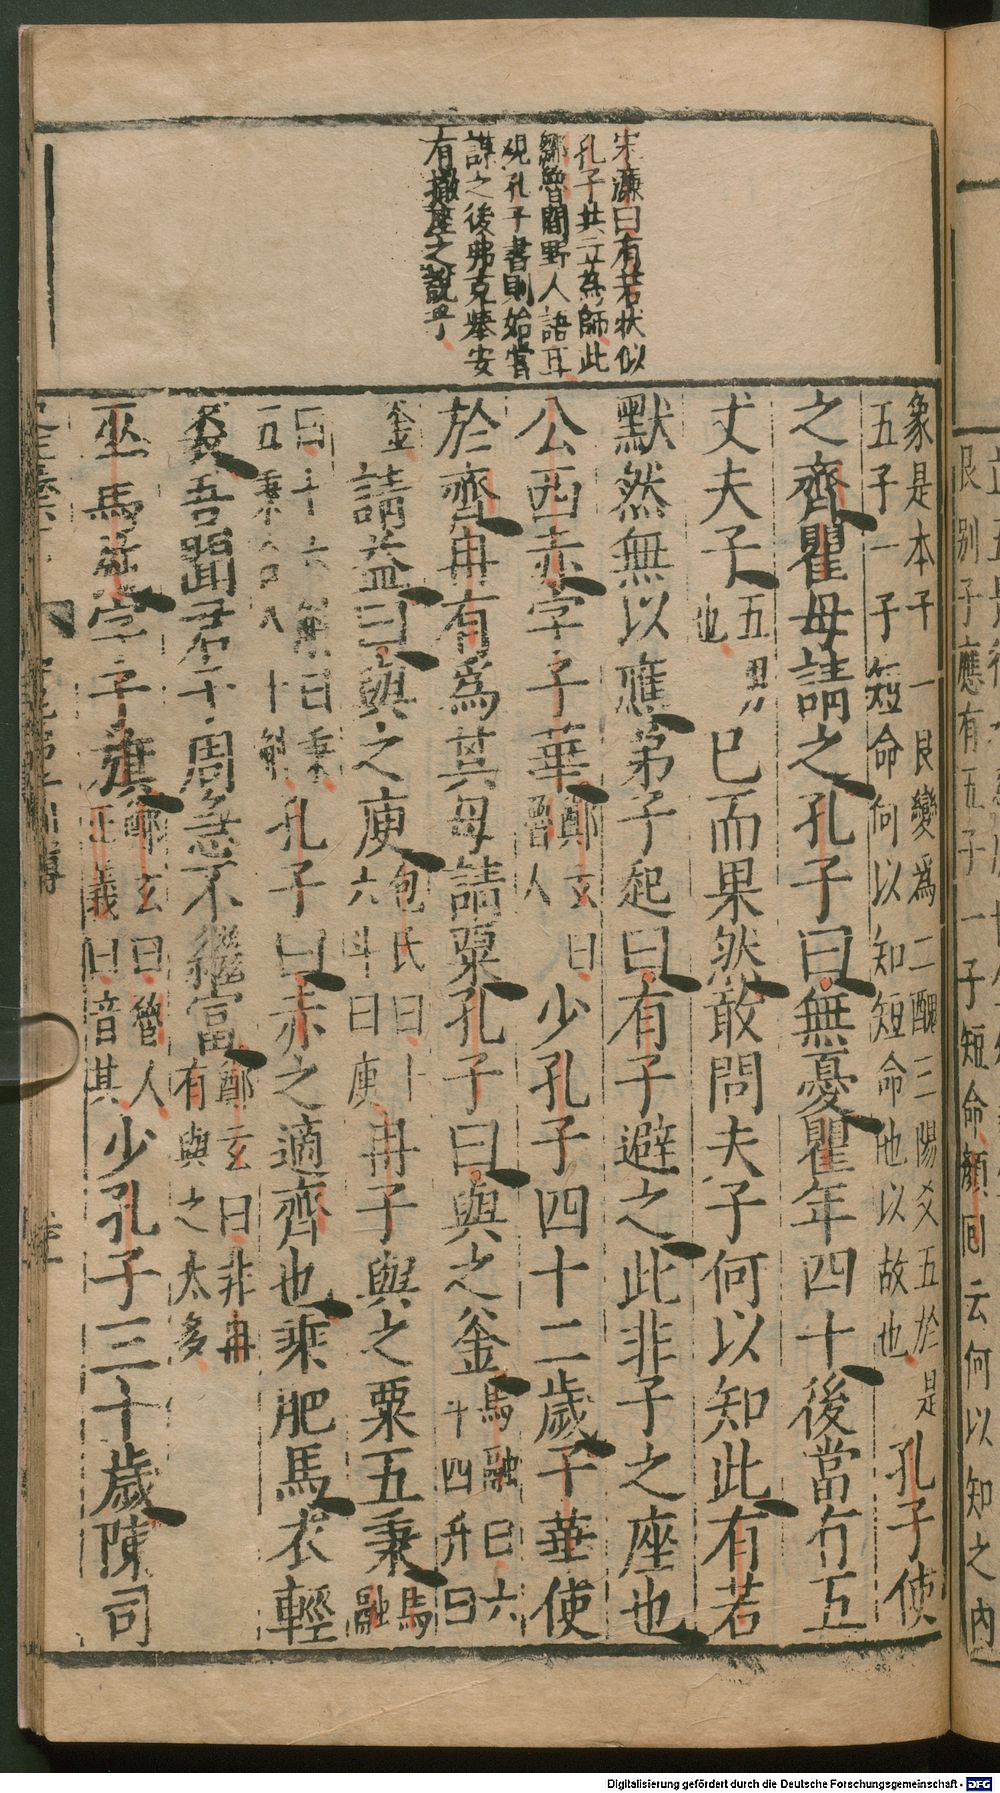 艮別子應有五子一子短命顏回云何以知之內
宋濂曰有若狀似
孔子共立為師此
鄒魯間野人語耳
觀孔子書則始嘗
謀之後弗克舉安
有撤座之說乎
象是本子一艮變為二醜三陽爻五於是
五子一子短命何以知短命他以故也
孔子使
之齊瞿母請之孔子曰無憂瞿年四十後當有五
丈夫子五男也已而果然敢問夫子何以知此有若
默然無以應弟子起曰有子避之此非子之座也
公西赤字子華鄭玄曰魯人少孔子四十二歲子華使
於齊冉有爲其母請粟孔子曰與之釜馬融曰六斗四升曰
釜請益曰與之庾包氏曰十六斗曰庾冉子與之粟五秉馬融
曰十六斛曰秉五秉合八十斛孔子曰赤之適齊也乘肥馬衣輕
裘吾聞君子周急不繼富鄭玄曰非冉有與之太多
巫馬施字子旗鄭玄曰魯人正義曰音其少孔子三十歲陳司
Digitalisierung gefördert durch die Deutsche Forschungsgemeinschaft - DFG